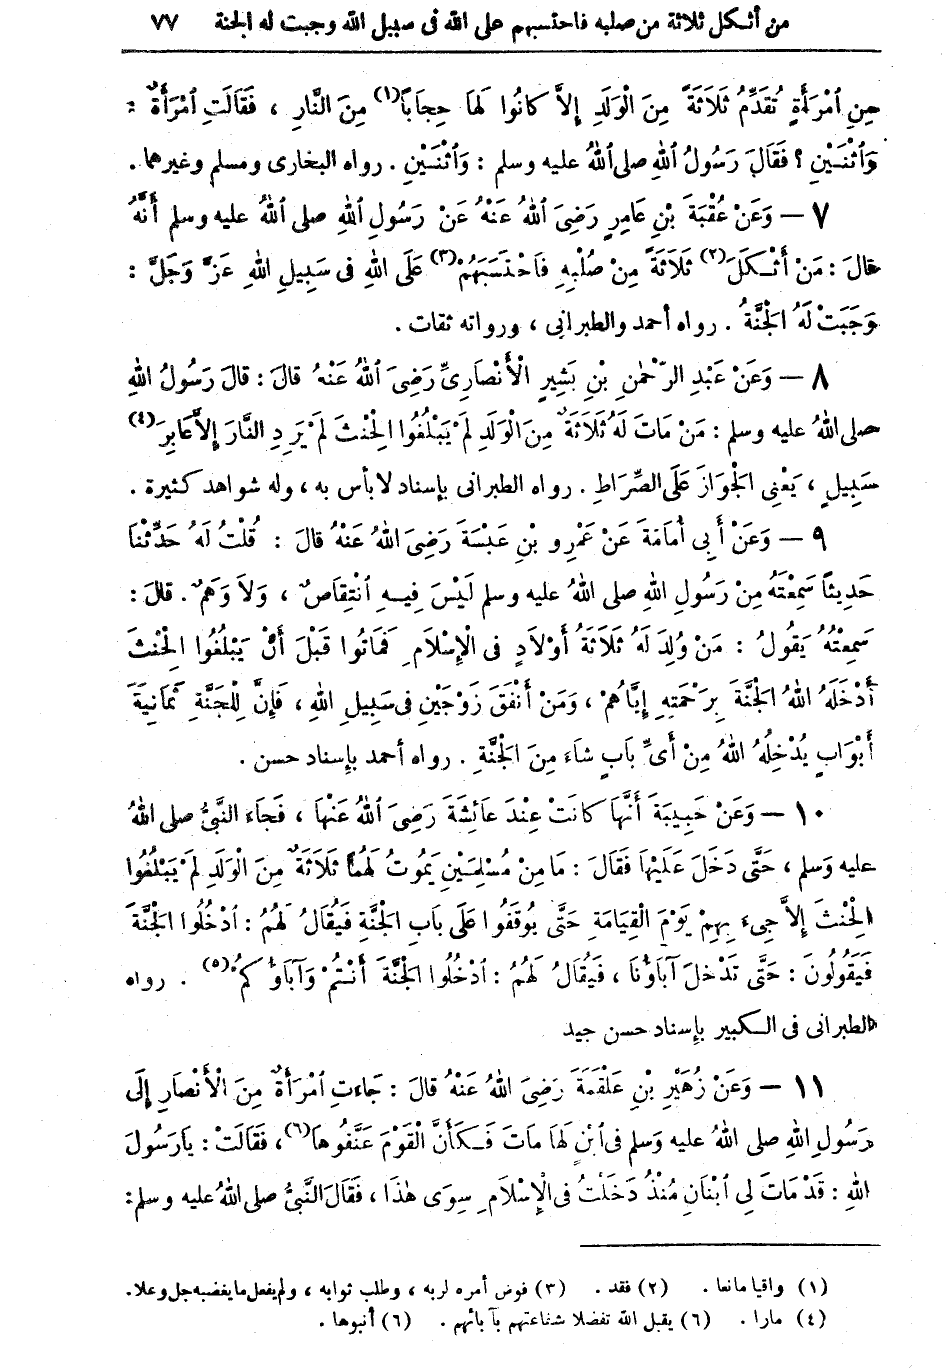 من أثكل ثلاثة من صلبه فاحتسبهم على الله فى سبيل الله وجبت له الجنة ٧٧
مِنِ ٱمْرَأَةٍ تُقَدِّمُ ثَلَاثَةً مِنَ الْوَلَدِ إِلاَّ كانُوا لَهَا حِجاَباً(١) مِنَ النَّارِ ، فَقَالَتِ ٱمْرَأَةٌ :
وَٱثْنَيْنِ ؟ فَقَالَ رَسُولُ ٱللهِ صلى ٱللهُ عليه وسلم : وَٱثْنَيْنِ . رواه البخارى ومسلم وغيرهما .
٧ — وَعَنْ عُقْبَةَ بْنِ عاَمِرٍ رَضِىَ ٱللهُ عَنْهُ عَنْ رَسُولِ ٱللهِ صلى ٱللهُ عليه وسلم أَنَّهُ
قالَ : مَنْ أَثْكَلَ(٢) ثَلَاثَةً مِنْ صُلْبِهِ فاَحْتَسَبَهُمْ(٣) عَلَى اللهِ فى سَبِيلِ اللهِ عَزَّ وَجَلَّ :
وَجَبَتْ لَهُ الْجَنَّةُ . رواه أحمد والطبرانى ، ورواته ثقات .
٨ — وَعَنْ عَبْدِ الرَّحْمٰنِ بْنِ بَشِيرٍ الْأَنْصَارِىِّ رَضِىَ ٱللهُ عَنْهُ قالَ : قالَ رَسُولُ اللهِ
صلى اللهُ عليه وسلم : مَنْ ماَتَ لَهُ ثَلَاثَةٌ مِنَ الْوَلَدِ لَمْ يَبْلُغُوا الْحِنْثَ لَمْ يَرِدِ النَّارَ إِلاَّ عاَبِرَ(٤)
سَبِيلٍ ، يَعْنِى الْجَوَازَ عَلَى الصِّرَاطِ . رواه الطبرانى بإسناد لا بأس به ، وله شواهد كثيرة .
٩ — وَعَنْ أَبِى أُمَامَةَ عَنْ عَمْرِو بْنِ عَبْسَةَ رَضِىَ اللهُ عَنْهُ قالَ : قُلْتُ لَهُ حَدِّثْنَا
حَدِيثاً سَمِعْتَهُ مِنْ رَسُولِ اللهِ صلى اللهُ عليه وسلم لَيْسَ فِيهِ ٱنْتِقَاصٌ ، وَلاَ وَهَمٌ . قالَ :
سَمِعْتُهُ يَقُولُ : مَنْ وُلِدَ لَهُ ثَلَاثَةُ أَوْلاَدٍ فى الْإِسْلَامِ فَمَاتُوا قَبْلَ أَنْ يَبْلُغُوا الْحِنْثَ
أَدْخَلَهُ اللهُ الْجَنَّةَ بِرَحْمَتِهِ إِيَّاهُمْ ، وَمَنْ أَنْفَقَ زَوْجَيْنِ فى سَبِيلِ اللهِ ، فَإِنَّ لِلْجَنَّةِ ثَمَانِيَةَ
أَبْوَابٍ يُدْخِلُهُ اللهُ مِنْ أَىِّ باَبٍ شاَءَ مِنَ الْجَنَّةِ . رواه أحمد بإسناد حسن .
١٠ — وَعَنْ حَبِيبَةَ أَنَّهَا كانَتْ عِنْدَ عاَئِشَةَ رَضِىَ ٱللهُ عَنْهَا ، فَجَاءَ النَّبِىُّ صلى اللهُ
عليه وَسلم ، حَتَّى دَخَلَ عَلَيْهَا فَقَالَ : ماَ مِنْ مُسْلِمَيْنِ يَمُوتُ لَهُمَا ثَلَاثَةٌ مِنَ الْوَلَدِ لَمْ يَبْلُغُوا
الْحِنْثَ إِلاَّ جِىءَ بِهِمْ يَوْمَ الْقِيَامَةِ حَتَّى يُوقَفُوا عَلَى باَبِ الْجَنَّةِ فَيُقَالُ لَهُمُ : ٱدْخُلُوا الْجَنَّةَ
فَيَقُولُونَ : حَتَّى تَدْخُلَ آباَؤُناَ ، فَيُقَالُ لَهُمُ : ٱدْخُلُوا الْجَنَّةَ أَنْتُمْ وَآباَؤُكُمْ(٥) . رواه
الطبرانى فى الكبير بإسناد حسن جيد
١١ — وَعَنْ زُهَيْرِ بْنِ عَلْقَمَةَ رَضِىَ اللهُ عَنْهُ قالَ : جاَءتِ ٱمْرَأَةٌ مِنَ الْأَنْصَارِ إِلَى
رَسُولِ اللهِ صلى اللهُ عليه وَسلم فى ٱبْنٍ لَهَا ماتَ فَكَأَنَّ الْقَوْمَ عَنَّفُوهاَ(٦) ، فَقَالَتْ : ياَرَسُولَ
اللهِ : قَدْ ماَتَ لِى ٱبْناَنِ مُنْذُ دَخَلْتُ فى الْإِسْلَامِ سِوَى هٰذَا ، فَقَالَ النَّبِىُّ صلى اللهُ عليه وسلم :
(١) واقيا مانعا . (٢) فقد . (٣) فوض أمره لربه ، وطلب ثوابه ، ولم يفعل ما يغضبه جل وعلا .
(٤) مارا . (٦) يقبل الله تفضلا شفاعتهم بآبائهم . (٦) أنبوها .